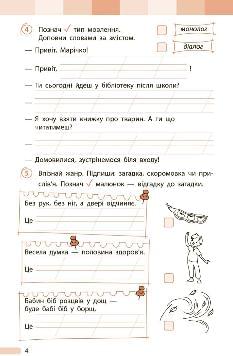 4 Познач ✓ тип мовлення.
Доповни словами за змістом.
монолог
діалог
— Привіт, Марічко!
— Привіт, !
— Ти сьогодні йдеш у бібліотеку після школи?
—
— Я хочу взяти книжку про тварин. А ти що
читатимеш?
—
— Домовилися, зустрінемося біля входу!
5 Впізнай жанр. Підпиши: загадка, скоромовка чи при-
слів'я. Познач ✓ малюнок — відгадку до загадки.
Без рук, без ніг, а двері відчиняє.
Це
Весела думка — половина здоров'я.
Це
Бабин біб розцвів у дощ —
буде бабі біб у борщ.
Це
4